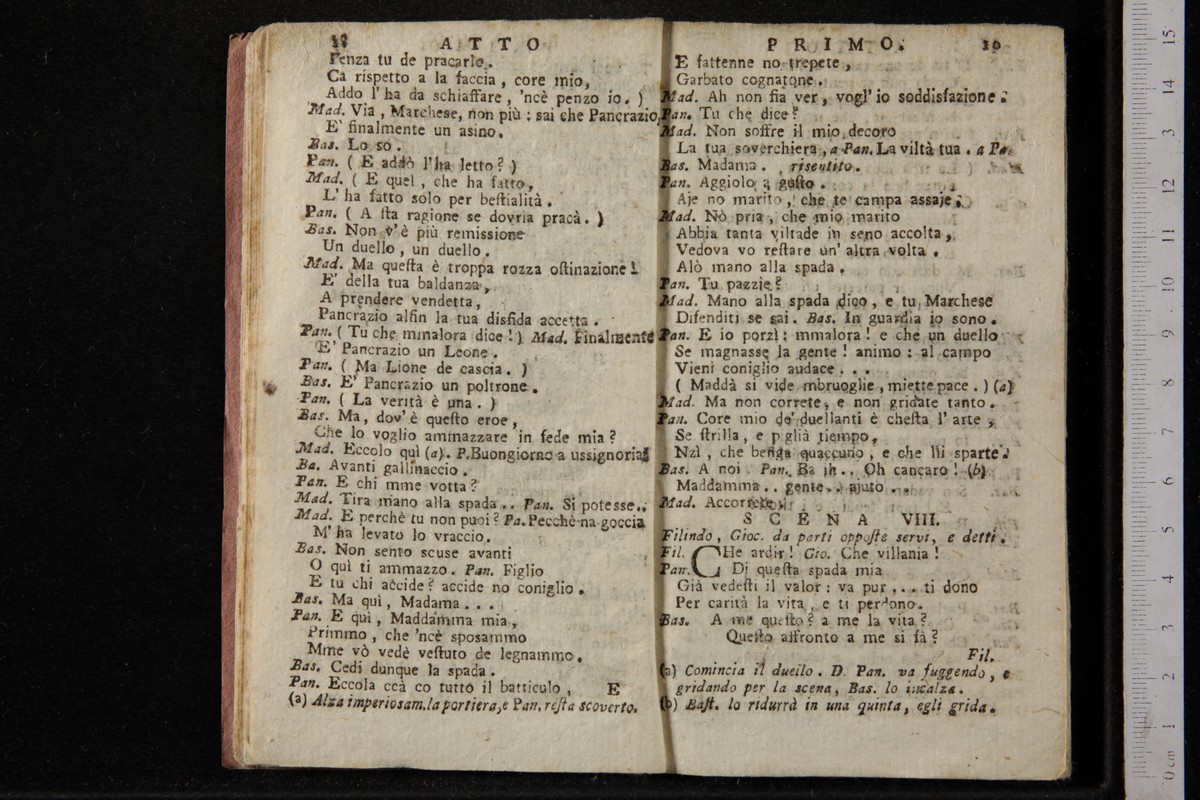 18 ATTO
Penza tu de pracarlo.
Ca rispetto a la faccia, core mio,
Addo l'ha da schiaffare, 'ncè penzo io. )
Mad. Via, Marchese, non più : sai che Pancrazio,
E' finalmente un asino.
Bas. Lo so.
Pan. ( E addò l'ha letto? )
Mad. ( E quel, che ha fatto,
L'ha fatto solo per beſtialità.
Pan. ( A ſta ragione se dovria pracà. )
Bas. Non v'è più remissione
Un duello, un duello.
Mad. Ma queſta è troppa rozza oſtinazione!
E' della tua baldanza,
A prendere vendetta,
Pancrazio alfin la tua disfida accetta.
Pan. ( Tu che mmalora dice! ) Mad. Finalmente
E' Pancrazio un Leone.
Pan. ( Ma Lione de cascia. )
Bas. E' Pancrazio un poltrone.
Pan. ( La verità è una. )
Bas. Ma, dov'è queſto eroe,
Che lo voglio ammazzare in fede mia?
Mad. Eccolo quì (a). P. Buongiorno a ussignoria
Ba. Avanti gallinaccio.
Pan. E chi mme votta?
Mad. Tira mano alla spada.. Pan. Si potesse..
Mad. E perchè tu non puoi? Pa. Pecchè na goccia
M'ha levato lo vraccio.
Bas. Non sento scuse avanti
O quì ti ammazzo. Pan. Figlio
E tu chi accide? accide no coniglio.
Bas. Ma quì, Madama...
Pan. E quì, Maddamma mia,
Primmo, che 'ncè sposammo
Mme vò vedè veſtuto de legnammo.
Bas. Cedi dunque la spada.
Pan. Eccola ccà co tutto il batticulo, E
(a) Alza imperiosam. la portiera, e Pan. reſta scoverto.
PRIMO. 19
E fattenne no trepete,
Garbato cognatone.
Mad. Ah non fia ver, vogl'io soddisfazione.
Pan. Tu che dice?
Mad. Non soffre il mio decoro
La tua soverchiera, a Pan. La viltà tua. a Pa.
Bas. Madama. risentito.
Pan. Aggiolo a guſto.
Aje no marito, che te campa assaje.
Mad. Nò pria, che mio marito
Abbia tanta viltade in seno accolta,
Vedova vo reſtare un' altra volta.
Alò mano alla spada.
Pan. Tu pazzie?
Mad. Mano alla spada dico, e tu Marchese
Difenditi se sai. Bas. In guardia io sono.
Pan. E io porzì: mmalora! e che un duello
Se magnasse la gente! animo: al campo
Vieni coniglio audace...
( Maddà si vide mbruoglie, miette pace. ) (a)
Mad. Ma non correte, e non gridate tanto.
Pan. Core mio de' duellanti è cheſta l'arte,
Se ſtrilla, e piglià tiempo,
Nzì, che benga quaccuno, e che lli sparte.
Bas. A noi. Pan. Ba ih.. Oh cancaro! (b)
Maddamma.. gente.. ajuto..
Mad. Accorrete.
SCENA VIII.
Filindo, Gioc. da parti oppoſte servi, e detti.
Fil. CHe ardir! Gio. Che villania!
Pan. Di queſta spada mia
Già vedeſti il valor: va pur... ti dono
Per carità la vita, e ti perdono.
Bas. A me queſto? a me la vita?
Queſto affronto a me si fà?
Fil.
(a) Comincia il duello. D. Pan. va fuggendo, e
gridando per la scena, Bas. lo incalza.
(b) Baſt. lo ridurrà in una quinta, egli grida.